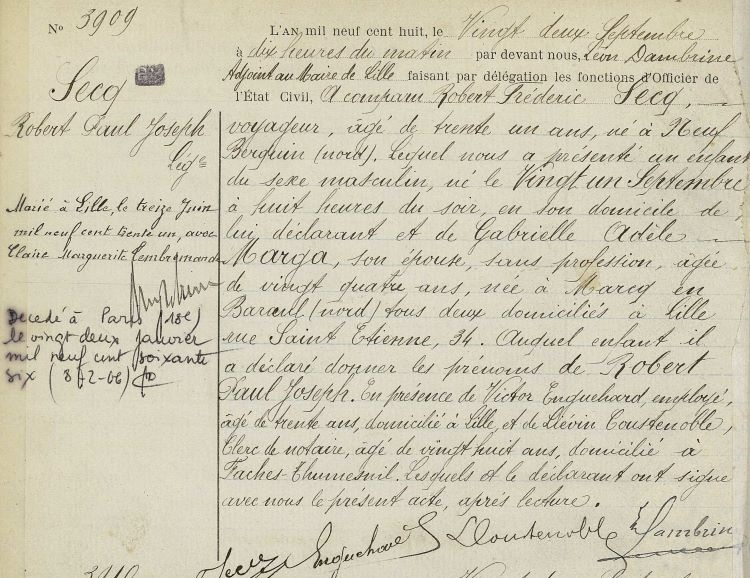 No 3909
Secq
Robert Paul Joseph
Leg.e
Marié à Lille, le treize Juin
mil neuf cent trente un, avec
Claire Marguerite
Décédé à Paris (18e)
le vingt deux janvier
mil neuf cent soixante
six
L'AN mil neuf cent huit, le Vingt deux Septembre
à dix heures du matin par devant nous, Léon Dambrine
Adjoint au Maire de Lille faisant par délégation les fonctions d'Officier de
l'État Civil, A comparu Robert Fréderic Secq,
voyageur, âgé de trente un ans, né à Neuf
Berquin (nord). Lequel nous a présenté un enfant
du sexe masculin, né le Vingt un Septembre
à huit heures du soir, en son domicile de
lui déclarant et de Gabrielle Adèle
Marga, son épouse, sans profession, âgée
de vingt quatre ans, née à Marcq en
Baroeul (nord) tous deux domiciliés à Lille
rue Saint Etienne, 34. Auquel enfant il
a déclaré donner les prénoms de Robert
Paul Joseph. En présence de Victor Enguehard, employé,
âgé de trente ans, domicilié à Lille, et de Liévin Coustenoble,
Clerc de notaire, âgé de vingt huit ans, domicilié à
Faches-Thumesnil. Lesquels et le déclarant ont signé
avec nous le présent acte, après lecture.
Secq Enguehard LCoustenoble Dambrin